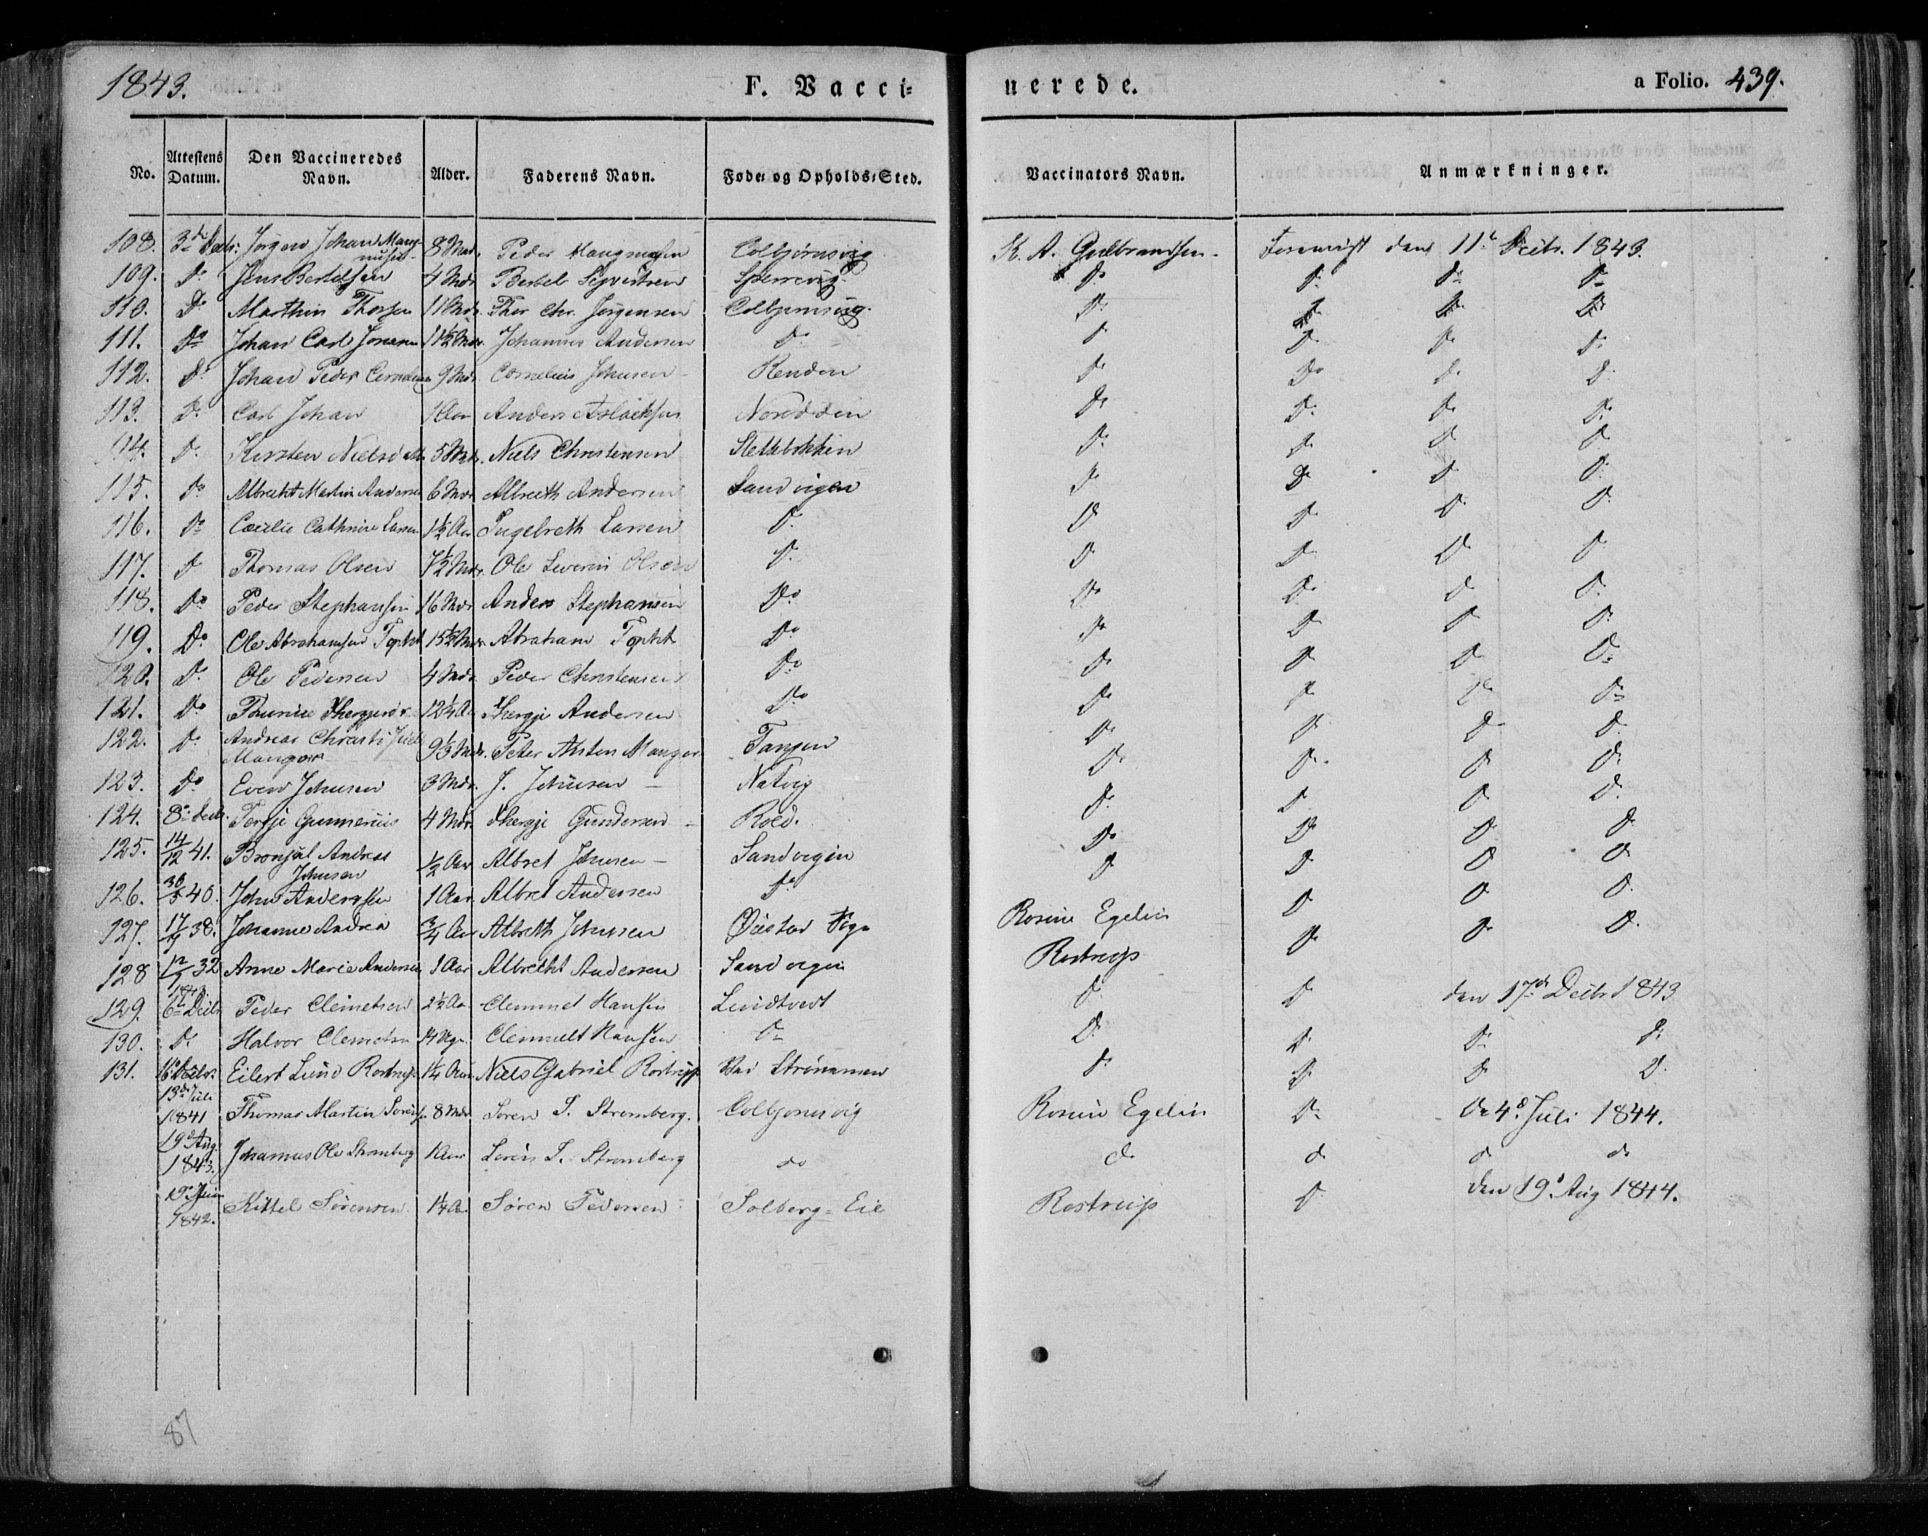 1843. F. Vacci= nerede. a Folio. 439.
No. Attestens Datum. Den Vaccineredes Navn. Alder. Faderens Navn. Føde= og Opholds=Sted. Vaccinators Navn. Anmærkninger.
108. 3d Decbr: Jørgen Johan Mangnusen 8 Mdr. Peder Mangnusen Colbjørnsvig K. A. Gulbrandsen. Foreviist den 11te Decbr. 1843.
109. Do Jens Bertelsen 4 Mdr. Bertel Syvertsen Sperrevig. Do Do Do Do
110. Do Marthin Thorsen 11 Mdr. Thor Chr. Jørgensen Colbjørnsvig. Do Do Do Do
111. Do Johan Carl Johansen 11½ Mdr. Johannes Andersen Do Do Do Do Do
112. Do Johan Peder Cornelius 9 Mdr. Cornelius Johnsen Renden Do Do Do Do
113. Do Carl Johan 1 Aar Anders Aslaksen Noredden Do Do Do Do
114. Do Kirsten Nielsd. 5 Mdr. Niels Christensen Slettebakken Do Do Do Do
115. Do Albrecht Martin Andersen 6 Mdr Albrecth Andersen Sandvigen Do Do Do Do
116. Do Cæcilie Cathrine Larsen 1½ Aar Ingebreth Larsen Do Do Do Do Do
117. Do Thomas Olsen 7½ Mdr. Ole Severin Olsen Do Do Do Do Do
118. Do Peder Stephansen 16 Mdr Anders Stephansen Do Do Do Do Do
119. Do Ole Abrahamsen 15½ Mdr Abraham Do Do Do Do Do
120. Do Ole Pedersen 4 Mdr. Peder Christensen Do Do Do Do Do
121. Do Thergjesd. 12¼ A. Thergje Andersen Do Do Do Do Do
122. Do Andreas Christi Juel Manger 9½ Mdr. Peter Anton Manger Tangen Do Do Do Do
123. Do Even Johnsen 3 Mdr. J. Johnsen Natvig Do Do Do Do
124. 8de Decbr. Terje Gunnerius 4 Mdr. Thergje Gundersen Roed. Do Do Do Do
125. 14/12 41. Andreas Johnsen ½ Aar Albret Johnsen Sandvigen Do Do Do Do
126. 30/5 40. John Anderssen 1 Aar Albret Andersen Do Do Do Do Do
127. 17/9 38. Johanne Andrea ¾ Aar Albreth Johnsen Øiestad Sogn Rosine Egelin Do Do Do
128 12/7 32 Anne Marie Andersen 1 Aar Albrecht Andersen Sandvigen Rostrup Do Do Do
129. 1843 6te Decbr Peder Clemetsen 2½ Aar Clemmet Hansen Lindtvedt Do Do den 17de Decbr 1843
130. Do Halvor Clemetsen 14 Uger Clemmelt Hansen Do Do Do Do Do
131. 16 Decbr. Eilert Lund Rostrup 1¼ Aar Niels Gabriel Rostrup Ved Strømmen Do Do Do Do
13de Juli 1841 Thomas Martin Sørens. 8 Mdr Søren T. Stromberg. Colbjønsvig Rosine Egelin Do Do 4d. Juli 1844.
19d Aug 1843. Johannes Ole Stromberg 1 Aar Søren T. Stromberg do do do do do
19de Juni 1842. Kittel Sørensen 1¼ A. Søren Pedersen Solberg=Eie Rostrup Do den 19d Aug 1844.
87